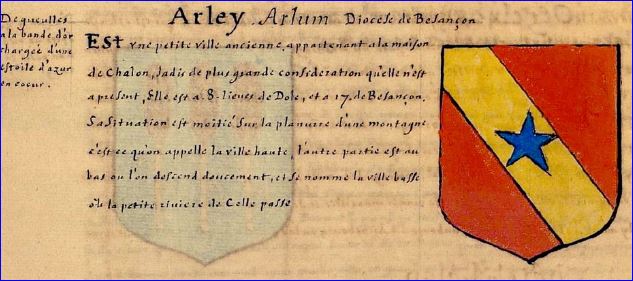 Arley. Arlum Diocese de Besançon
De gueulles
a la bande d'or
chargée d'une
estoile d'azur
en coeur.
Est vne petite ville ancienne, appartenant a la maison
de Chalon, Jadis de plus grande consideration qu'elle n'est
a present, Elle est a 8. lieues de Dole, et a 17. de Besançon.
Sa Situation est moitié Sur la planure d'une montagne
c'est ce qu'on appelle la ville haute, l'autre partie est au
bas ou l'on descend doucement, et Se nomme la ville basse
où la petite riviere de Celle passe